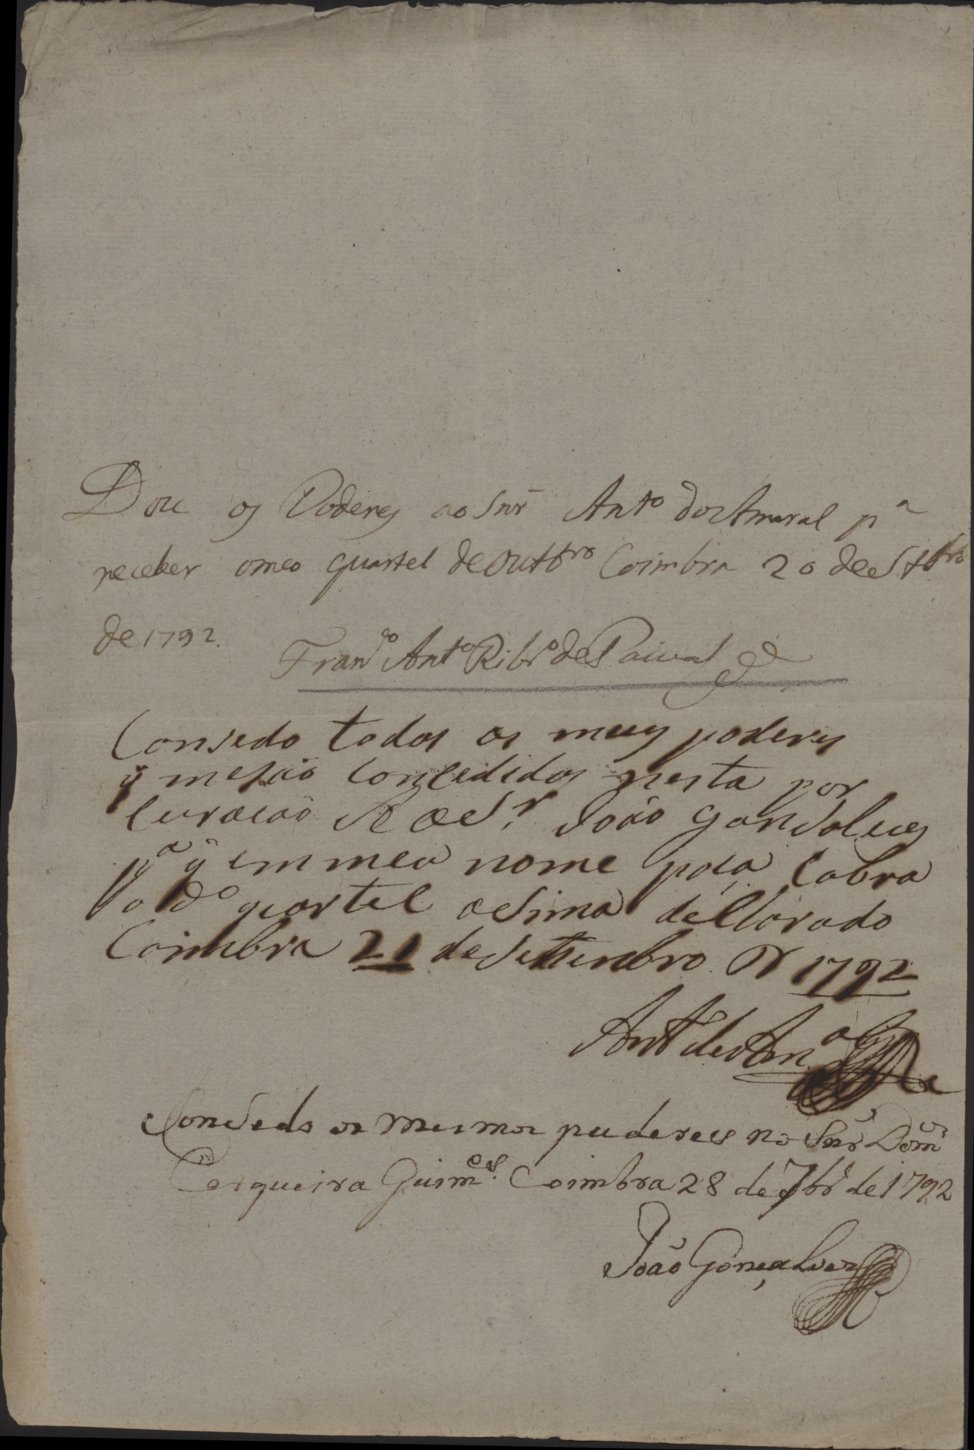 Dou os Poderes ao Snr̃ Antº do Amaral pª
receber o meo quartel de Outbrº Coimbra 20 de Stbrº
de 1792.
Franº Antº Ribrº de Paiva
Consedo todos os meus poderes
q̃ me são Concedidos nesta por
curacaõ Sr. João Gonsalues
pª q̃ em meu nome posa Cobra
o dº quartel asima decllarado
Coimbra 21 de Settembro de 1792
Antº do Amª
Consedo os mesmos puderes no Snr̃ Domºˢ
Cerqueira Guimẽs. Coimbra 28 de 7brº de 1792
João Gonçalves